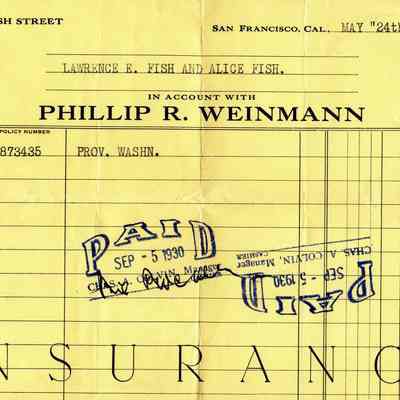 SH STREET
SAN FRANCISCO, CAL. MAY "24th
LAWRENCE E. FISH AND ALICE FISH.
IN ACCOUNT WITH
PHILLIP R. WEINMANN
POLICY NUMBER
873435 PROV. WASHN.
PAID
SEP - 5 1930
CHAS. A. COLVIN, Manager
PAID
SEP - 5 1930
CHAS. A. COLVIN, Manager
CASHIER
NSURANC